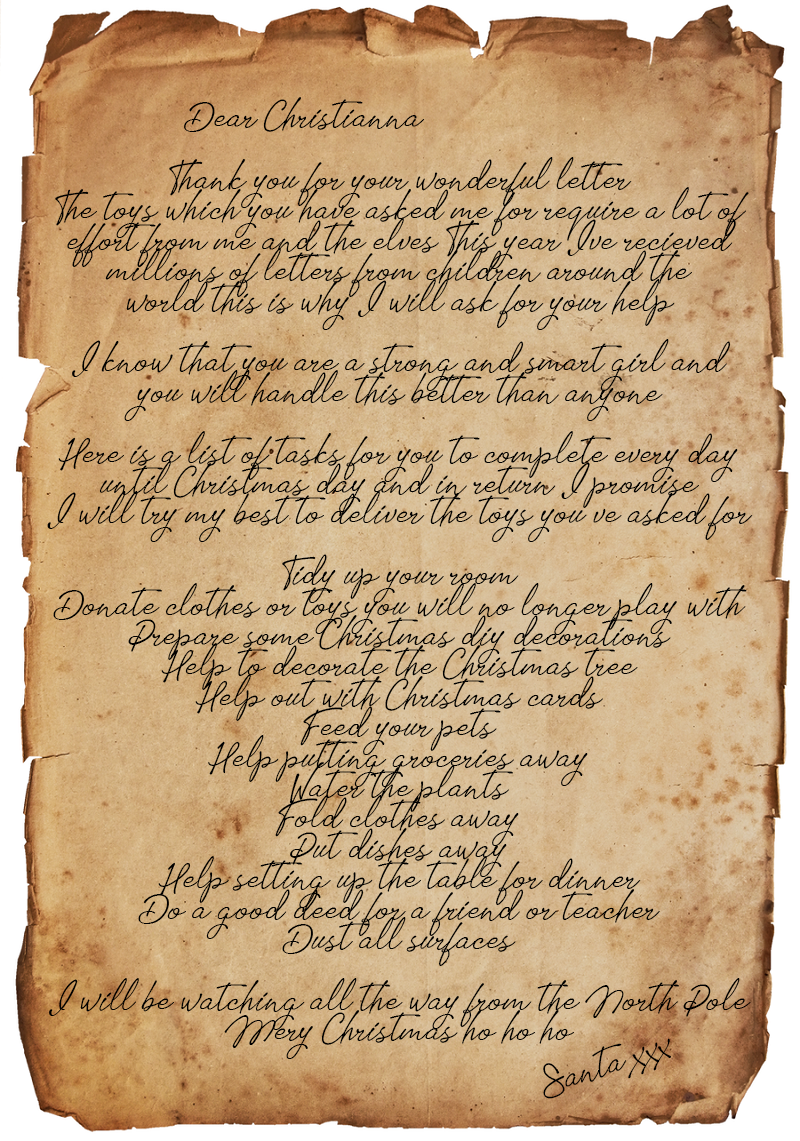 Dear Christianna
Thank you for your wonderful letter
The toys which you have asked me for require a lot of
effort from me and the elves This year Ive recieved
millions of letters from children around the
world this is why I will ask for your help
I know that you are a strong and smart girl and
you will handle this better than anyone
Here is a list of tasks for you to complete every day
until Christmas day and in return I promise
I will try my best to deliver the toys you ve asked for
Tidy up your room
Donate clothes or toys you will no longer play with
Prepare some Christmas diy decorations
Help to decorate the Christmas tree
Help out with Christmas cards
Feed your pets
Help putting groceries away
Water the plants
Fold clothes away
Put dishes away
Help setting up the table for dinner
Do a good deed for a friend or teacher
Dust all surfaces
I will be watching all the way from the North Pole
Mery Christmas ho ho ho
Santa xxx